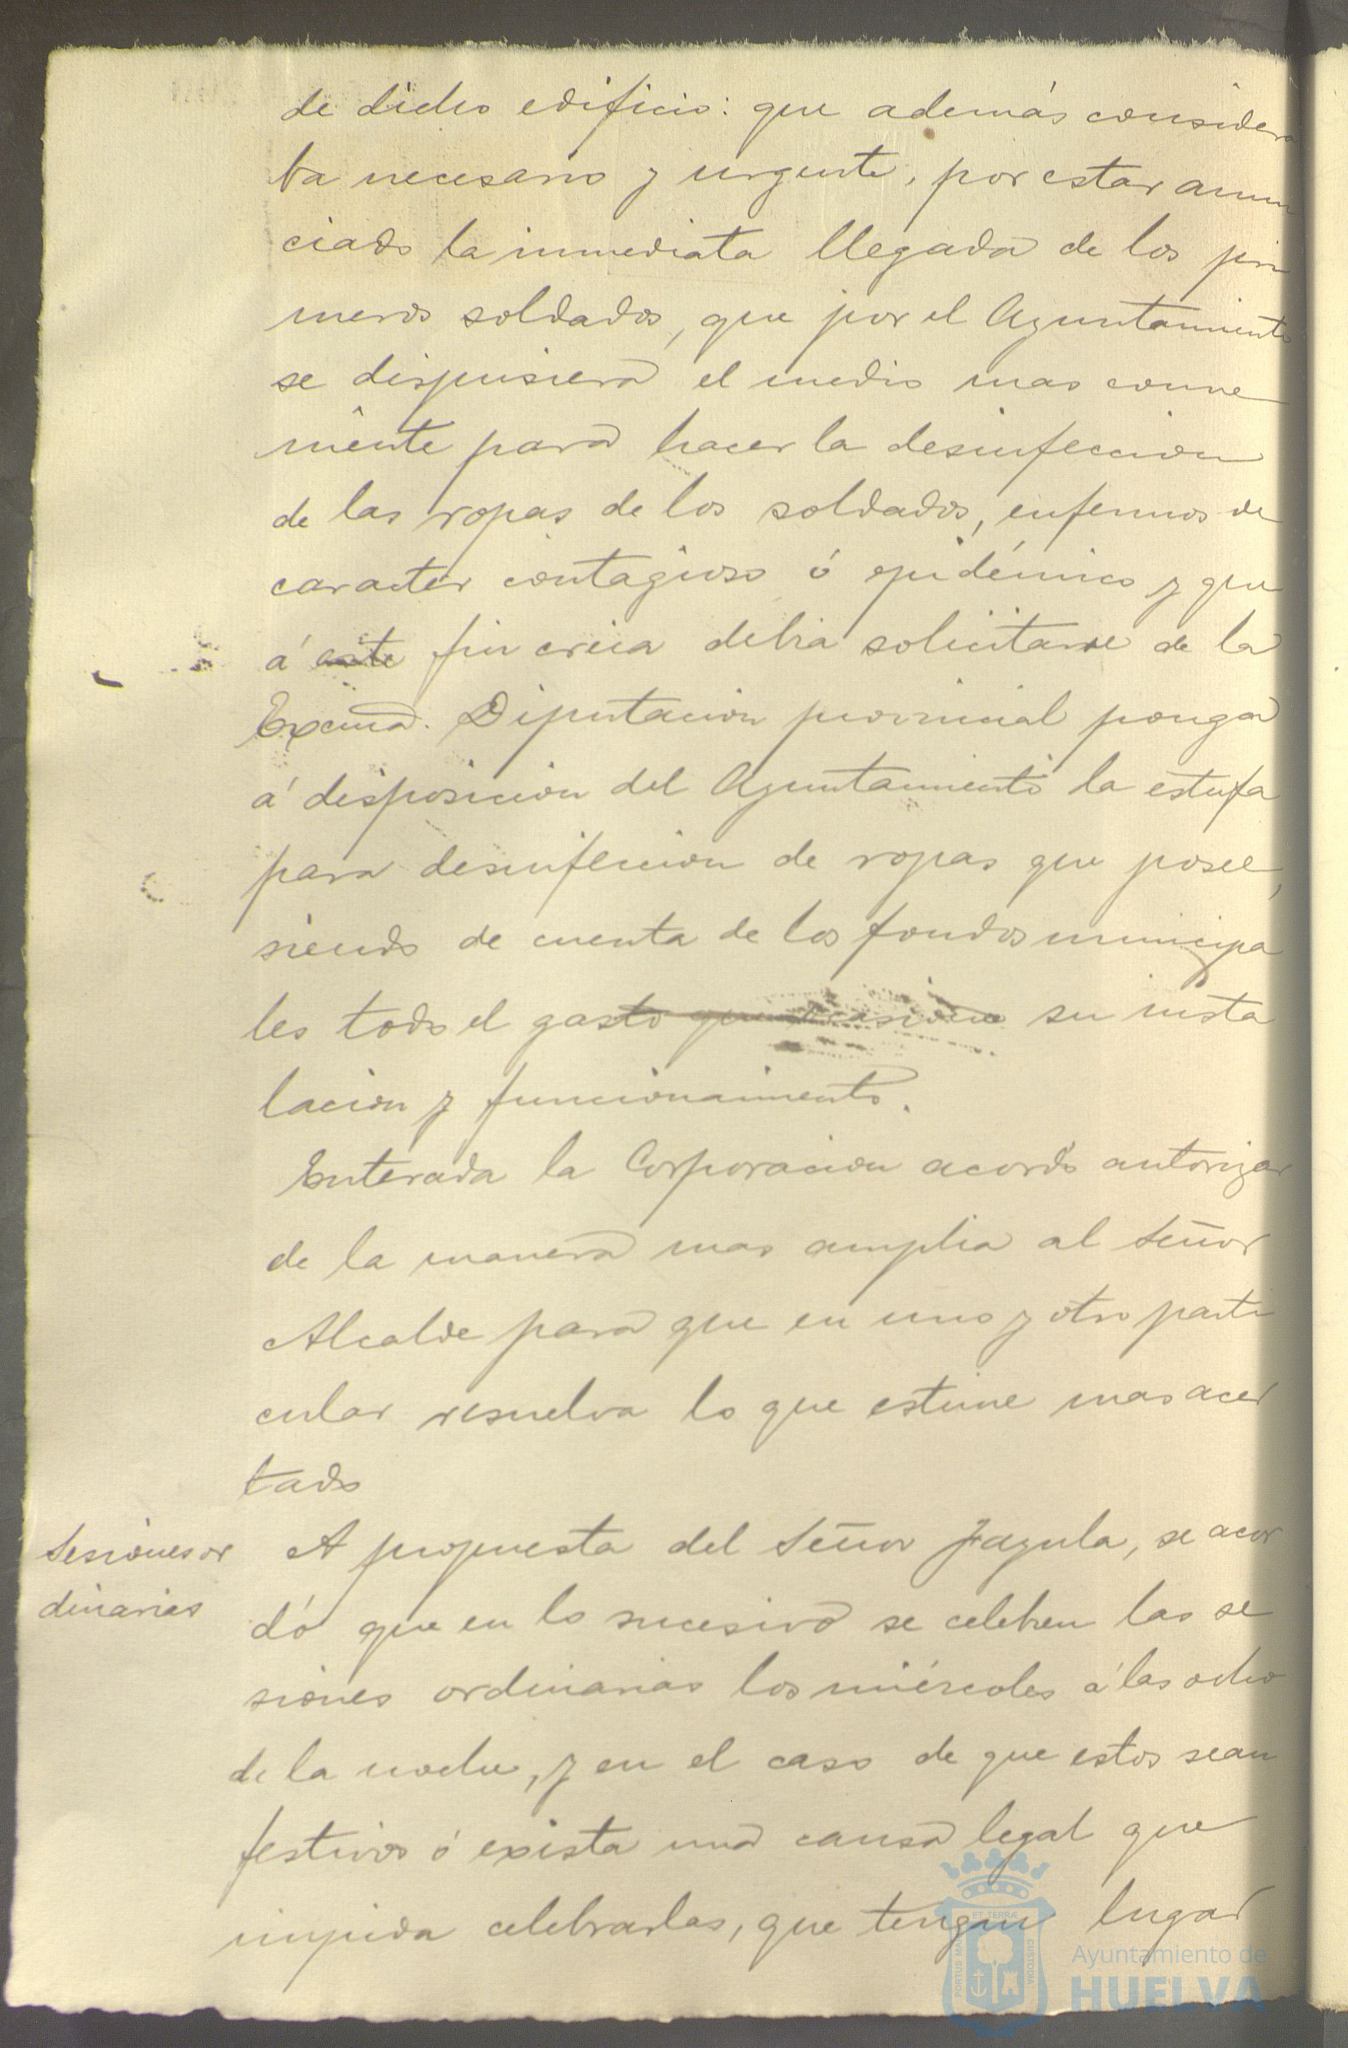 de dicho edificio: que además considera
ba necesario y urgente, por estar anun
ciado la inmediata llegada de los pri
meros soldados, que por el Ayuntamiento
se dispusiera el medio mas conve
niente para hacer la desinfeccion
de las ropas de los soldados, enfermos de
caracter contagioso ó epidémico y que
á este fin creia debia solicitarse de la
Excma. Diputacion provincial ponga
á disposicion del Ayuntamiento la estufa
para desinfeccion de ropas que posee,
siendo de cuenta de los fondos municipa
les todo el gasto que ocasione su insta
lacion y funcionamiento.
Enterada la Corporacion acordó autorizar
de la manera mas amplia al Señor
Alcalde para que en uno y otro parti
cular resuelva lo que estime mas acer
tado
Sesiones or
dinarias
A propuesta del Señor Jagula, se acor
dó que en lo sucesivo se celebren las se
siones ordinarias los miércoles á las ocho
de la noche, y en el caso de que estos sean
festivos ó exista una causa legal que
impida celebrarlas, que tengan lugar
PORTUS MARIS
ET TERRÆ
CUSTODIA
Ayuntamiento de
HUELVA